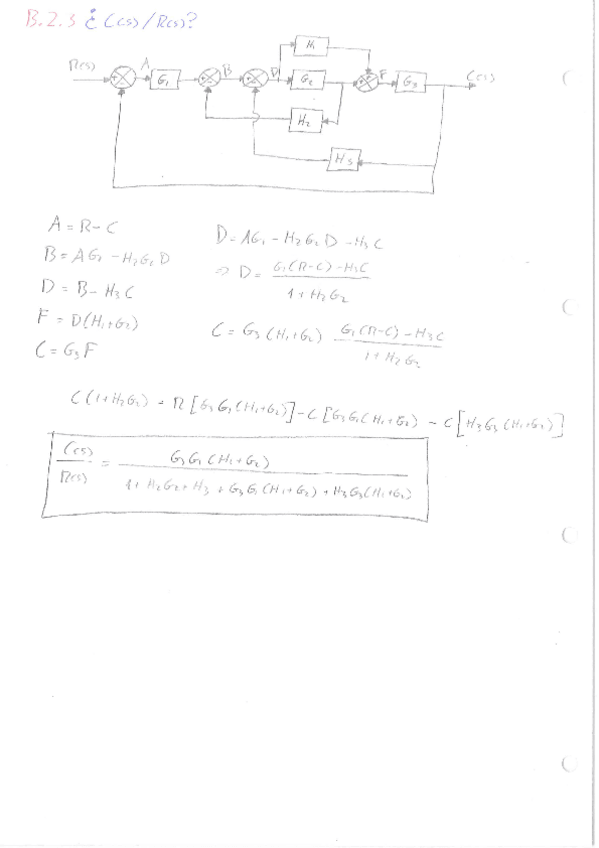 B.2.3 ¿ C(s)/R(s)?
R(s) A G₁ B D H₁ G₂ F G₃ C(s)
H₂
H₃
A = R - C
B = AG₁ - H₂G₂D
D = B - H₃C
F = D(H₁+G₂)
C = G₃F
D = AG₁ - H₂G₂D - H₃C
⇒ D = G₁(R-C) - H₃C / 1 + H₂G₂
C = G₃(H₁+G₂) G₁(R-C) - H₃C / 1 + H₂G₂
C(1+H₂G₂) = R[G₃G₁(H₁+G₂)] - C[G₃G₁(H₁+G₂) - C[H₃G₃(H₁+G₂)]
C(s)/R(s) = G₃G₁(H₁+G₂) / 1 + H₂G₂ + H₃ + G₃G₁(H₁+G₂) + H₃G₃(H₁+G₂)